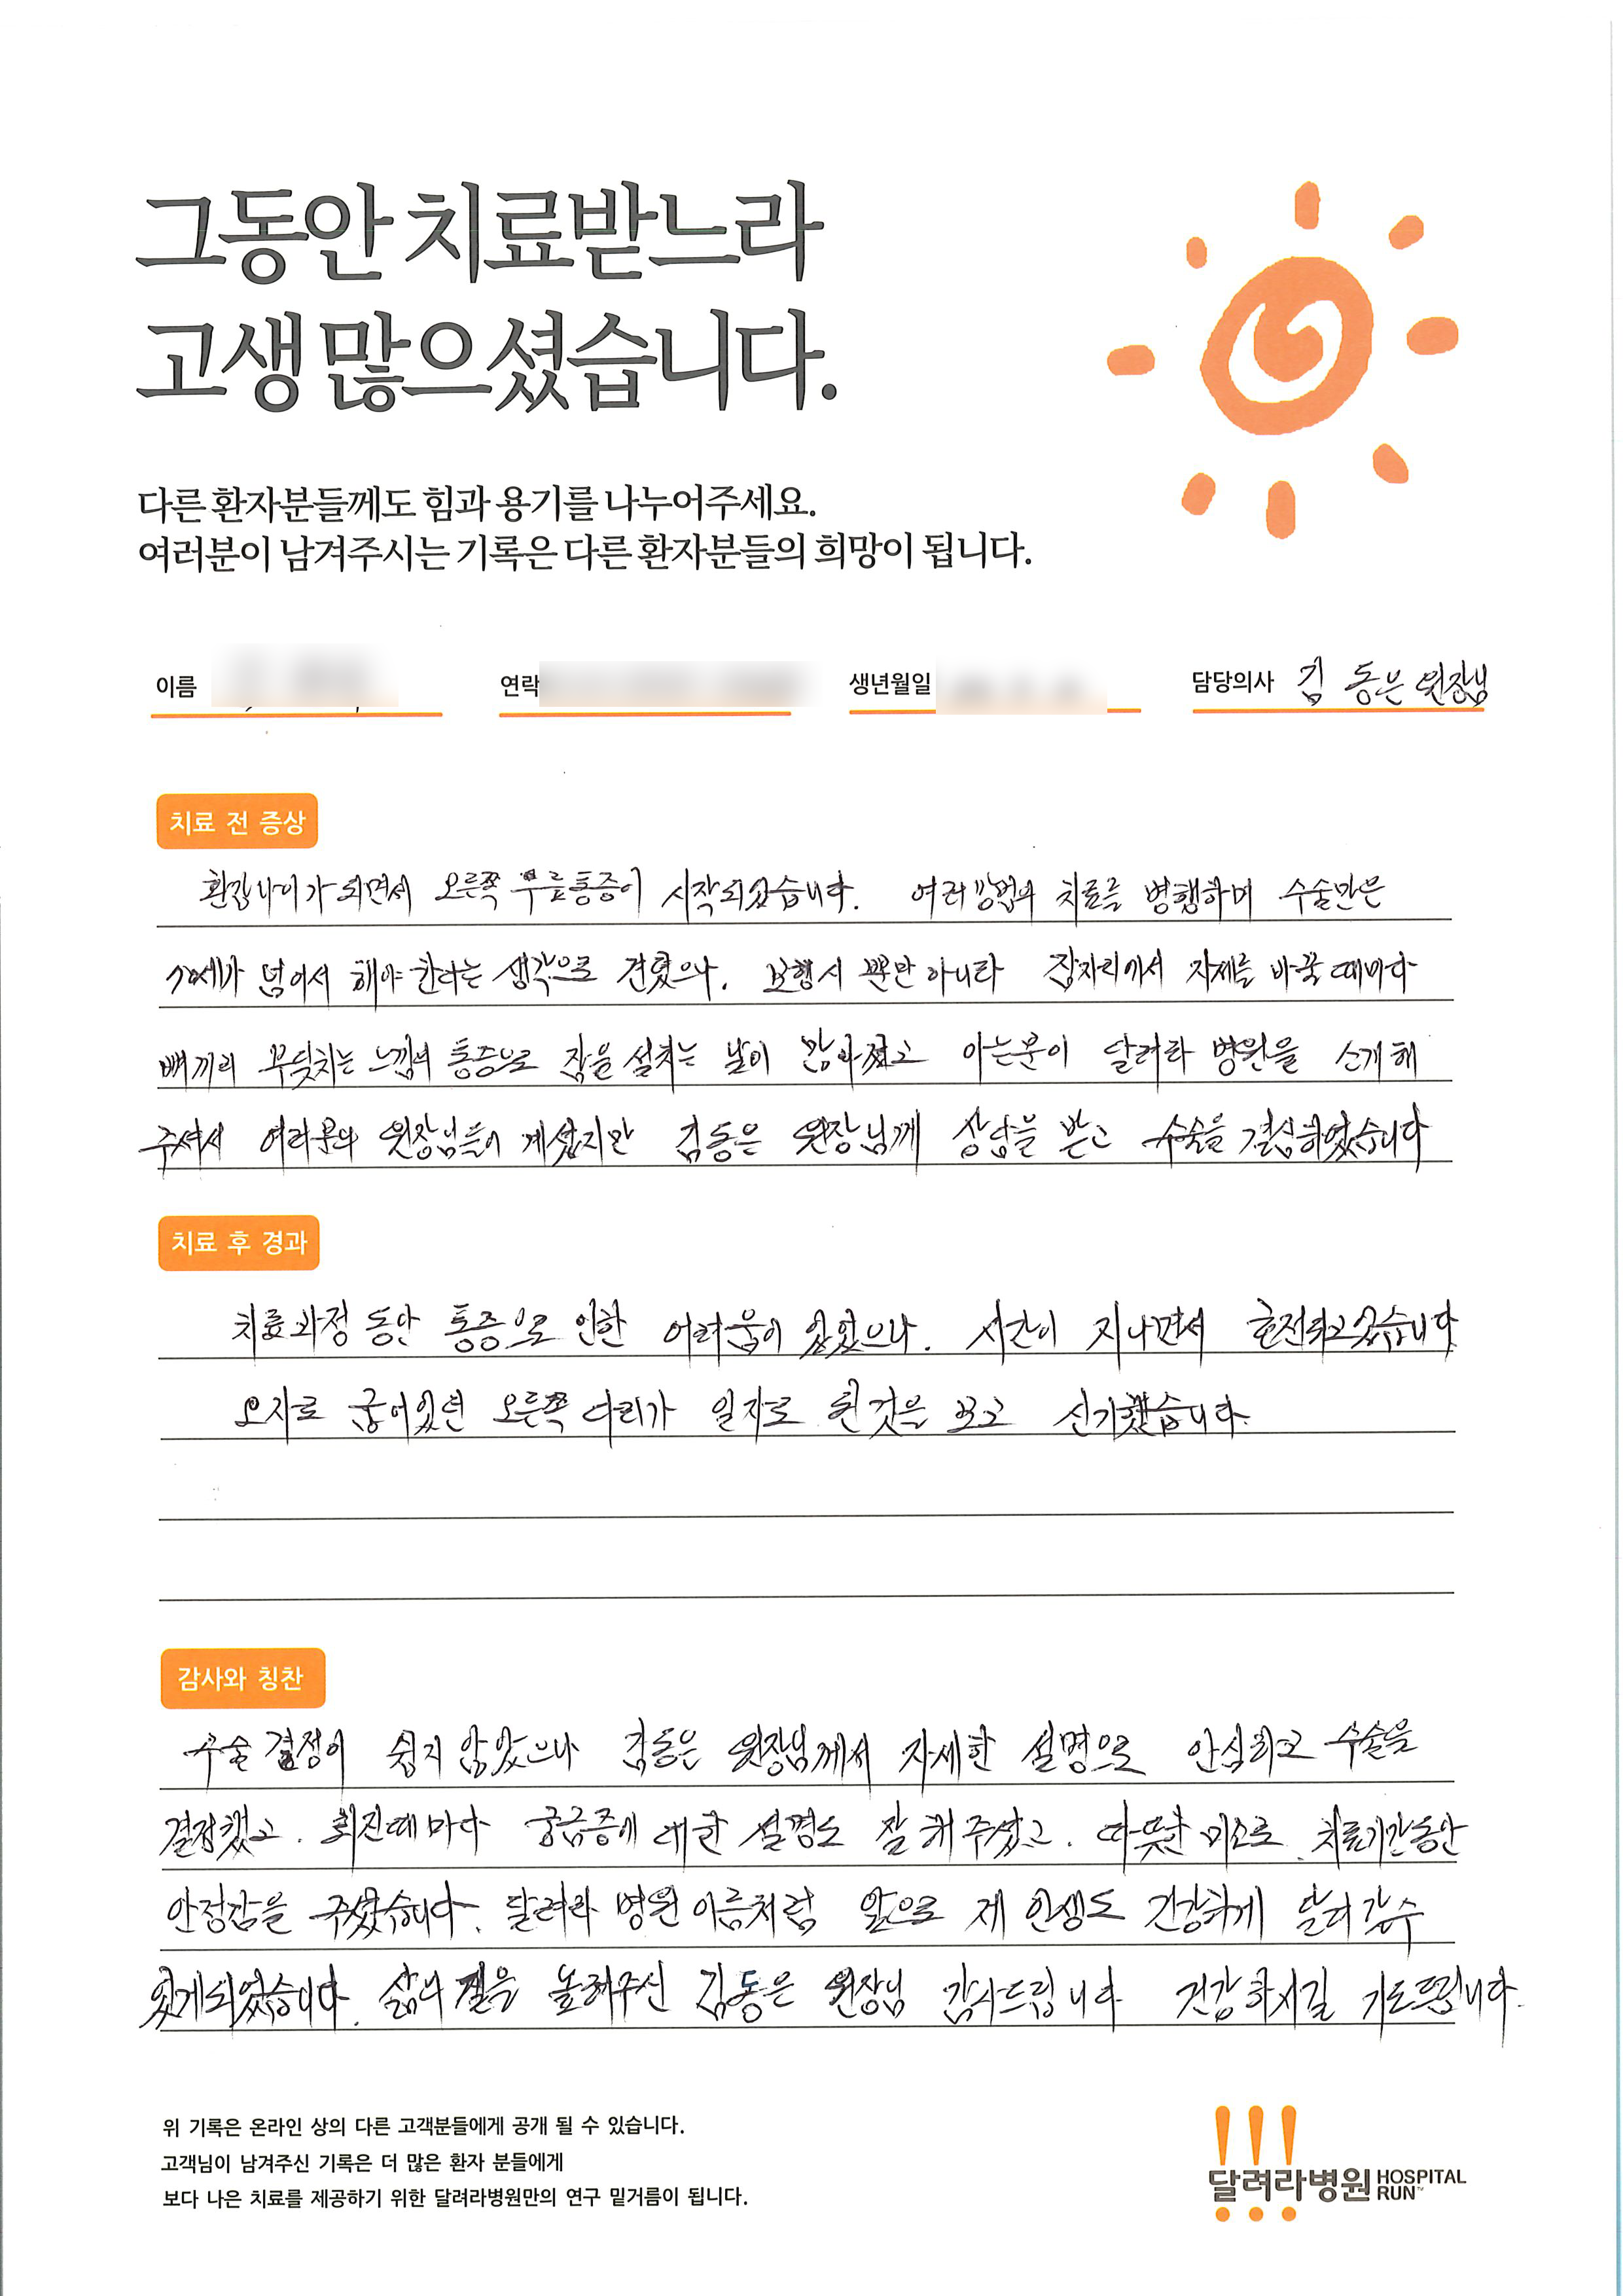 그동안 치료받느라
고생 많으셨습니다.
다른 환자분들께도 힘과 용기를 나누어주세요.
여러분이 남겨주시는 기록은 다른 환자분들의 희망이 됩니다.
이름 연락 생년월일 담당의사 김동은 원장님
치료 전 증상
환갑나이가 되면서 오른쪽 무릎통증이 시작되었습니다. 여러 방법의 치료를 병행하며 수술만은
70세가 넘어서 해야 한다는 생각으로 견뎠으나, 보행시 뿐만 아니라 잠자리에서 자세를 바꿀 때마다
뼈끼리 부딪치는 느낌의 통증으로 잠을 설치는 날이 많아졌고 아는분이 달려라 병원을 소개해
주셔서 여러분의 원장님들이 계셨지만 김동은 원장님께 상담을 받고 수술을 결심하였습니다
치료 후 경과
치료과정 동안 통증으로 인한 어려움이 있었으나, 시간이 지나면서 호전되고 있습니다
오자로 굽어있던 오른쪽 다리가 일자로 된것을 보고 신기했습니다.
감사와 칭찬
수술 결정이 쉽지 않았으나 김동은 원장님께서 자세한 설명으로 안심되고 수술을
결정했고, 회진때마다 궁금증에 대한 설명도 잘 해 주셨고, 따뜻한 미소로 치료기간동안
안정감을 주셨습니다. 달려라 병원 이름처럼 앞으로 제 인생도 건강하게 달려갈수
있게되었습니다. 삶의 질을 높여주신 김동은 원장님 감사드립니다 건강하시길 기도드립니다.
위 기록은 온라인 상의 다른 고객분들에게 공개 될 수 있습니다.
고객님이 남겨주신 기록은 더 많은 환자 분들에게
보다 나은 치료를 제공하기 위한 달려라병원만의 연구 밑거름이 됩니다.
달려라병원 HOSPITAL RUN